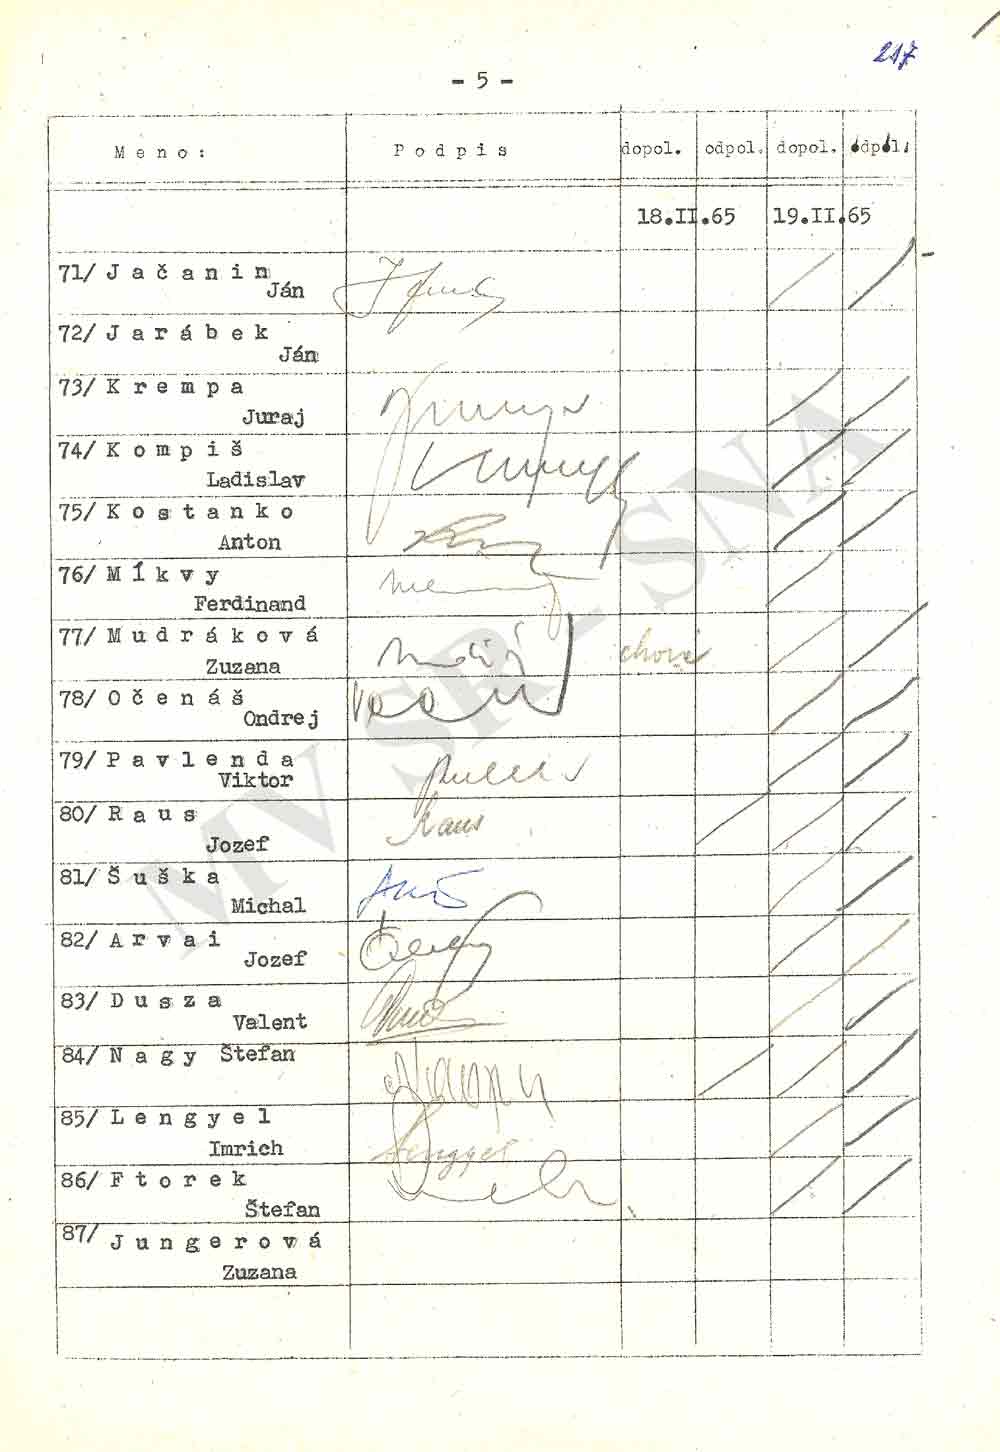 217
- 5 -
M e n o : P o d p i s dopol. odpol. dopol. odpol.
18.II.65 19.II.65
71/ J a č a n i n
Ján
72/ J a r á b e k
Ján
73/ K r e m p a
Juraj
74/ K o m p i š
Ladislav
75/ K o s t a n k o
Anton
76/ M í k v y
Ferdinand
77/ M u d r á k o v á
Zuzana chorá
78/ O č e n á š
Ondrej
79/ P a v l e n d a
Viktor
80/ R a u s Raus
Jozef
81/ Š u š k a
Michal
82/ A r v a i
Jozef
83/ D u s z a
Valent
84/ N a g y Štefan
85/ L e n g y e l
Imrich Lengyel
86/ F t o r e k
Štefan
87/ J u n g e r o v á
Zuzana
MV SR - SNA